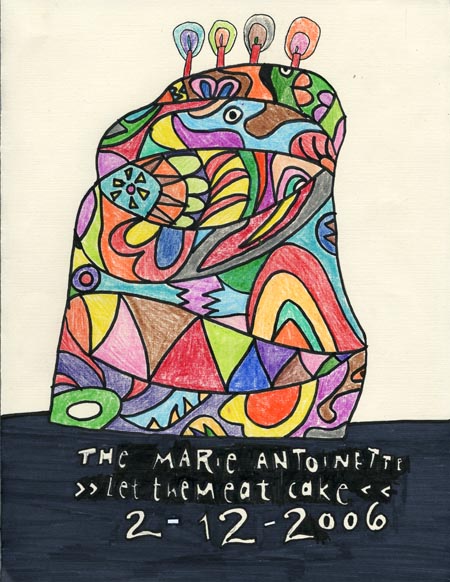 THE MARIE ANTOINETTE
>> Let them eat cake <<
2-12-2006